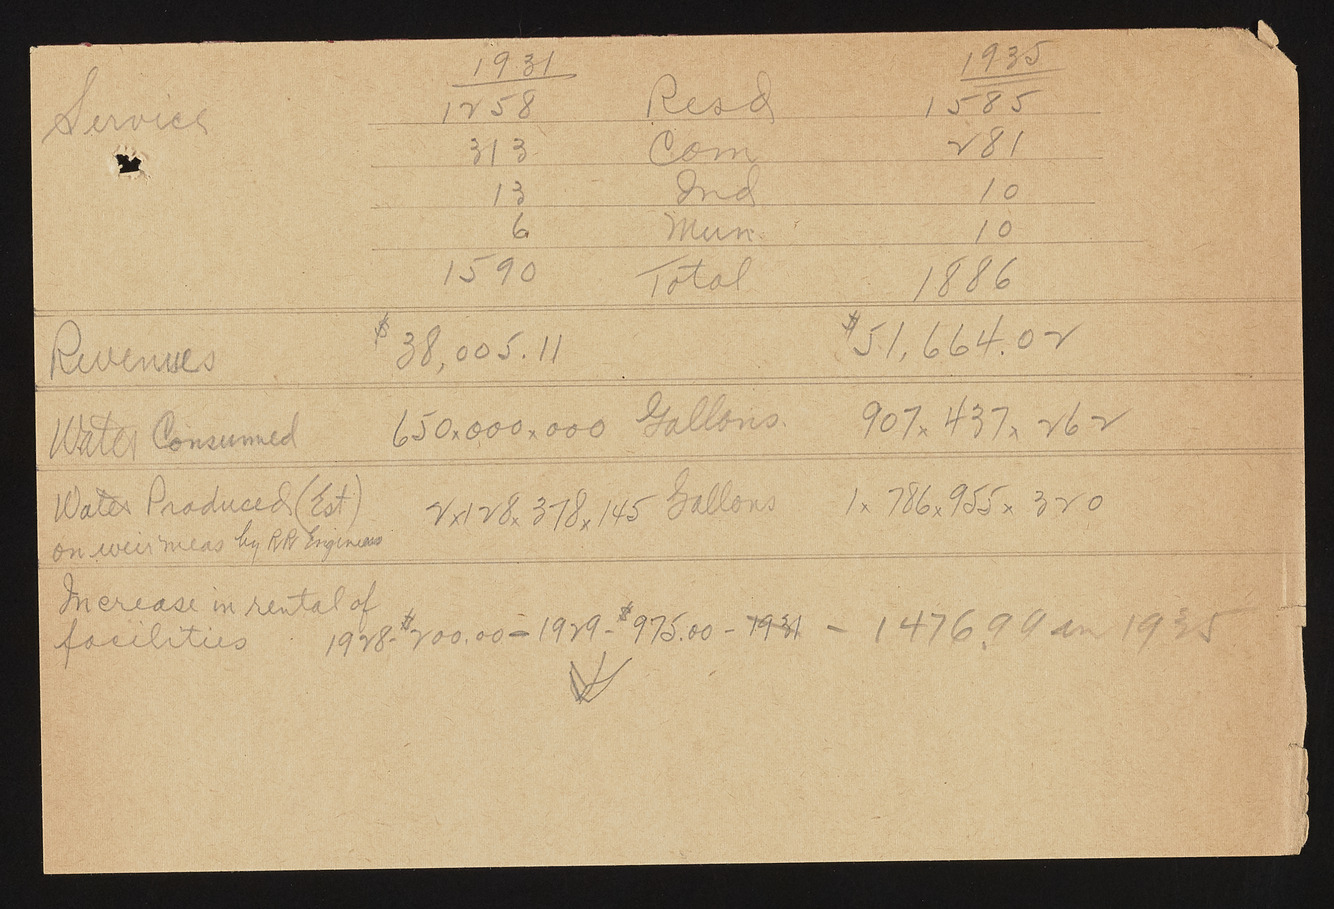 1931 1935
Service 1258 Resd 1585
313 Com 281
13 Ind 10
6 Mun. 10
1590 Total 1886
Revenues $38,005.11 $51,664.02
Water Consumed 650x000x000 Gallons. 907x 437x 262
Water Produced (Est) 2x128x 378x145 Gallons 1x 786x955x 320
on weir meas by RR Engineers
Increase in rental of
facilities 1928-$200.00 - 1929-$975.00 - 1931 - 1476.99 in 1935